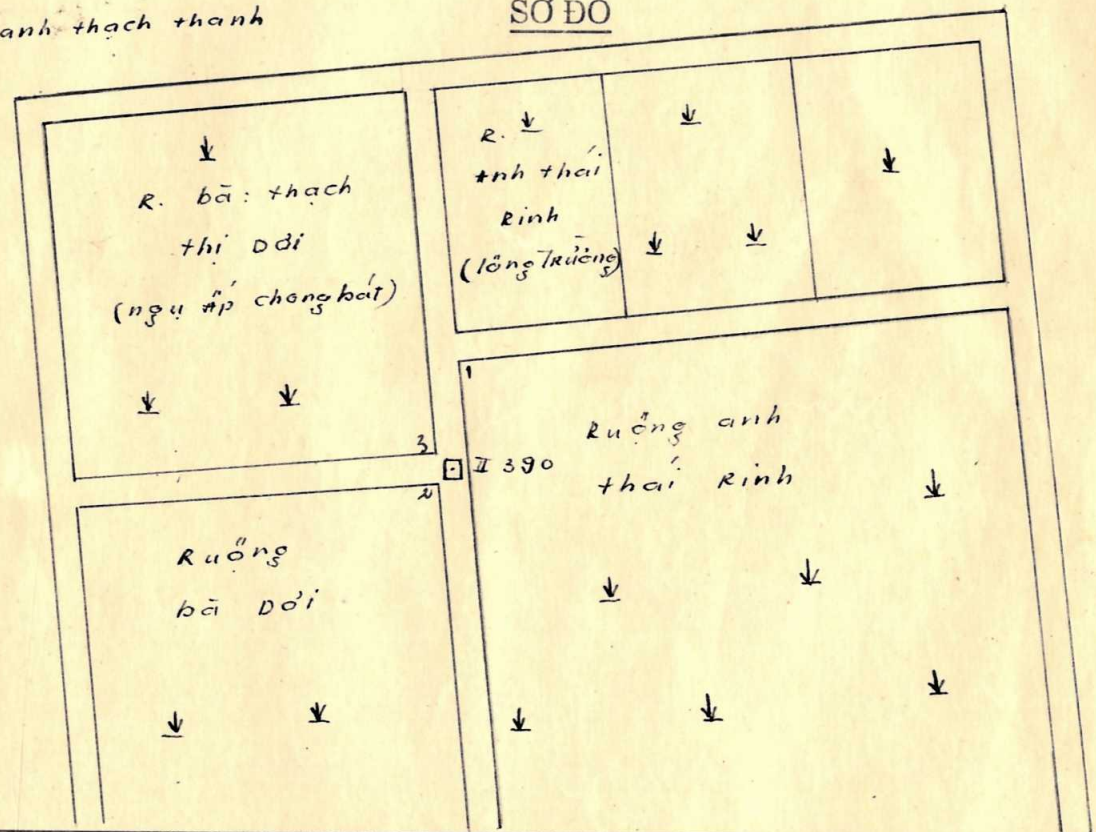 anh thạch thanh
SƠ ĐỒ
R. bà: thạch
thị Dơi
(ngụ ấp chongbát)
R.
Anh thái
Rinh
(lông Trường)
1
Ruộng anh
thái Rinh
3
II 390
2
Ruộng
bà Dơi